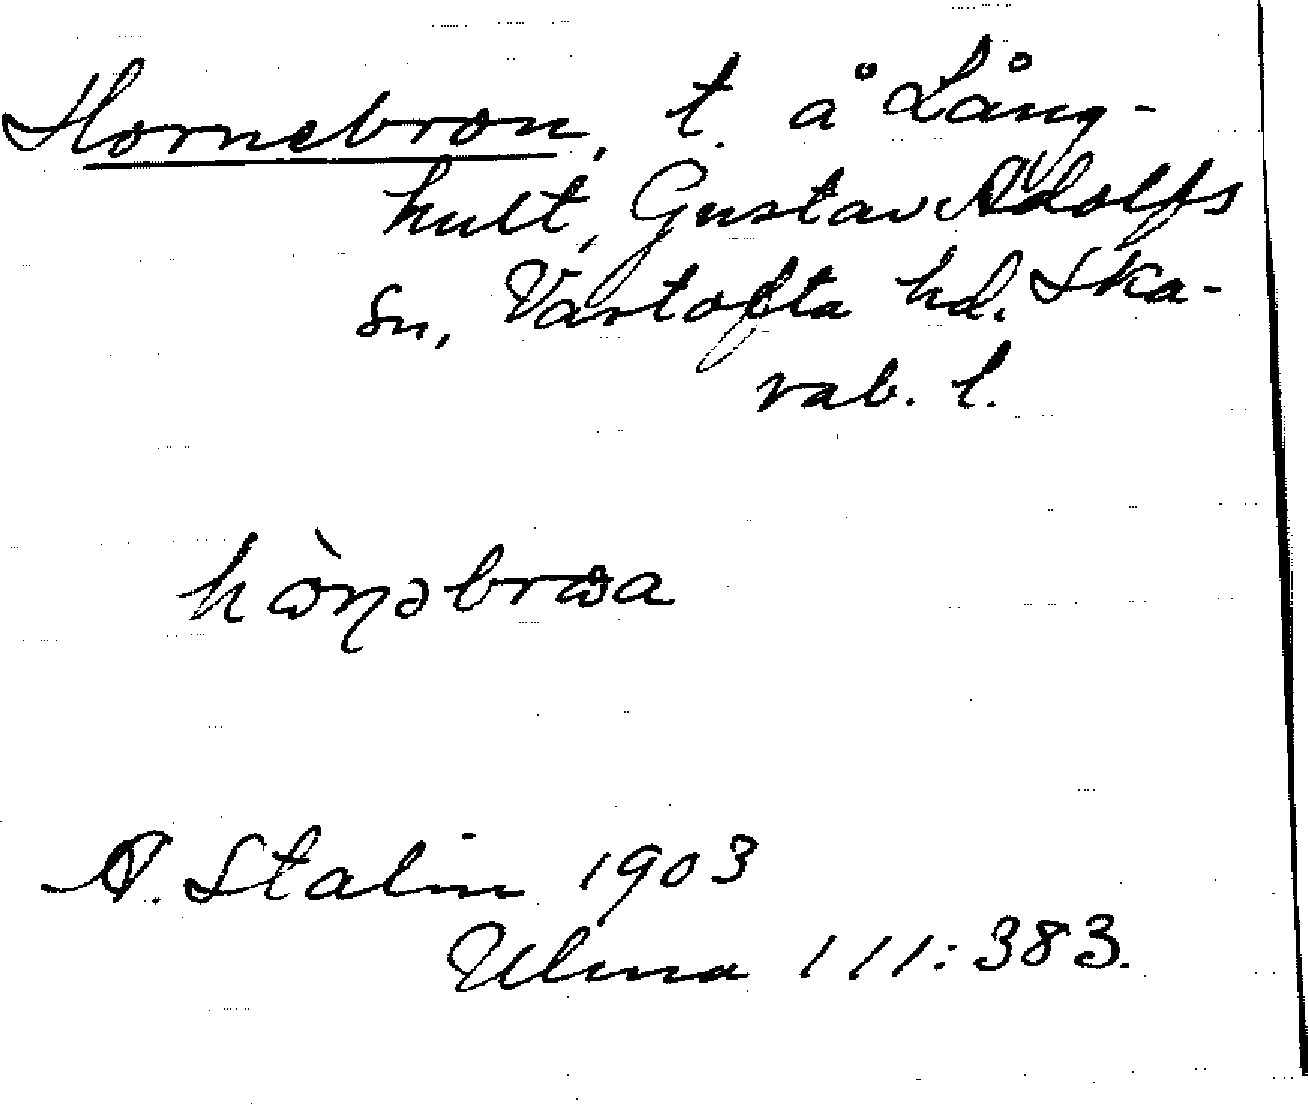 Hornebron, t. å Lång-
hult, Gustav Adolfs
sn, Vartofta hd. Ska-
rab. l.
hòṇəbrωa
A. Stalin 1903
Ulma 111:383.